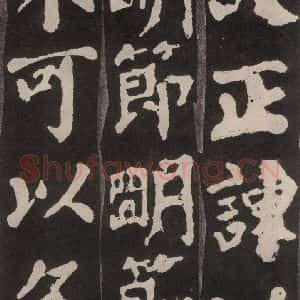 正諫
明節明節
不可以久
Shufawang.CN